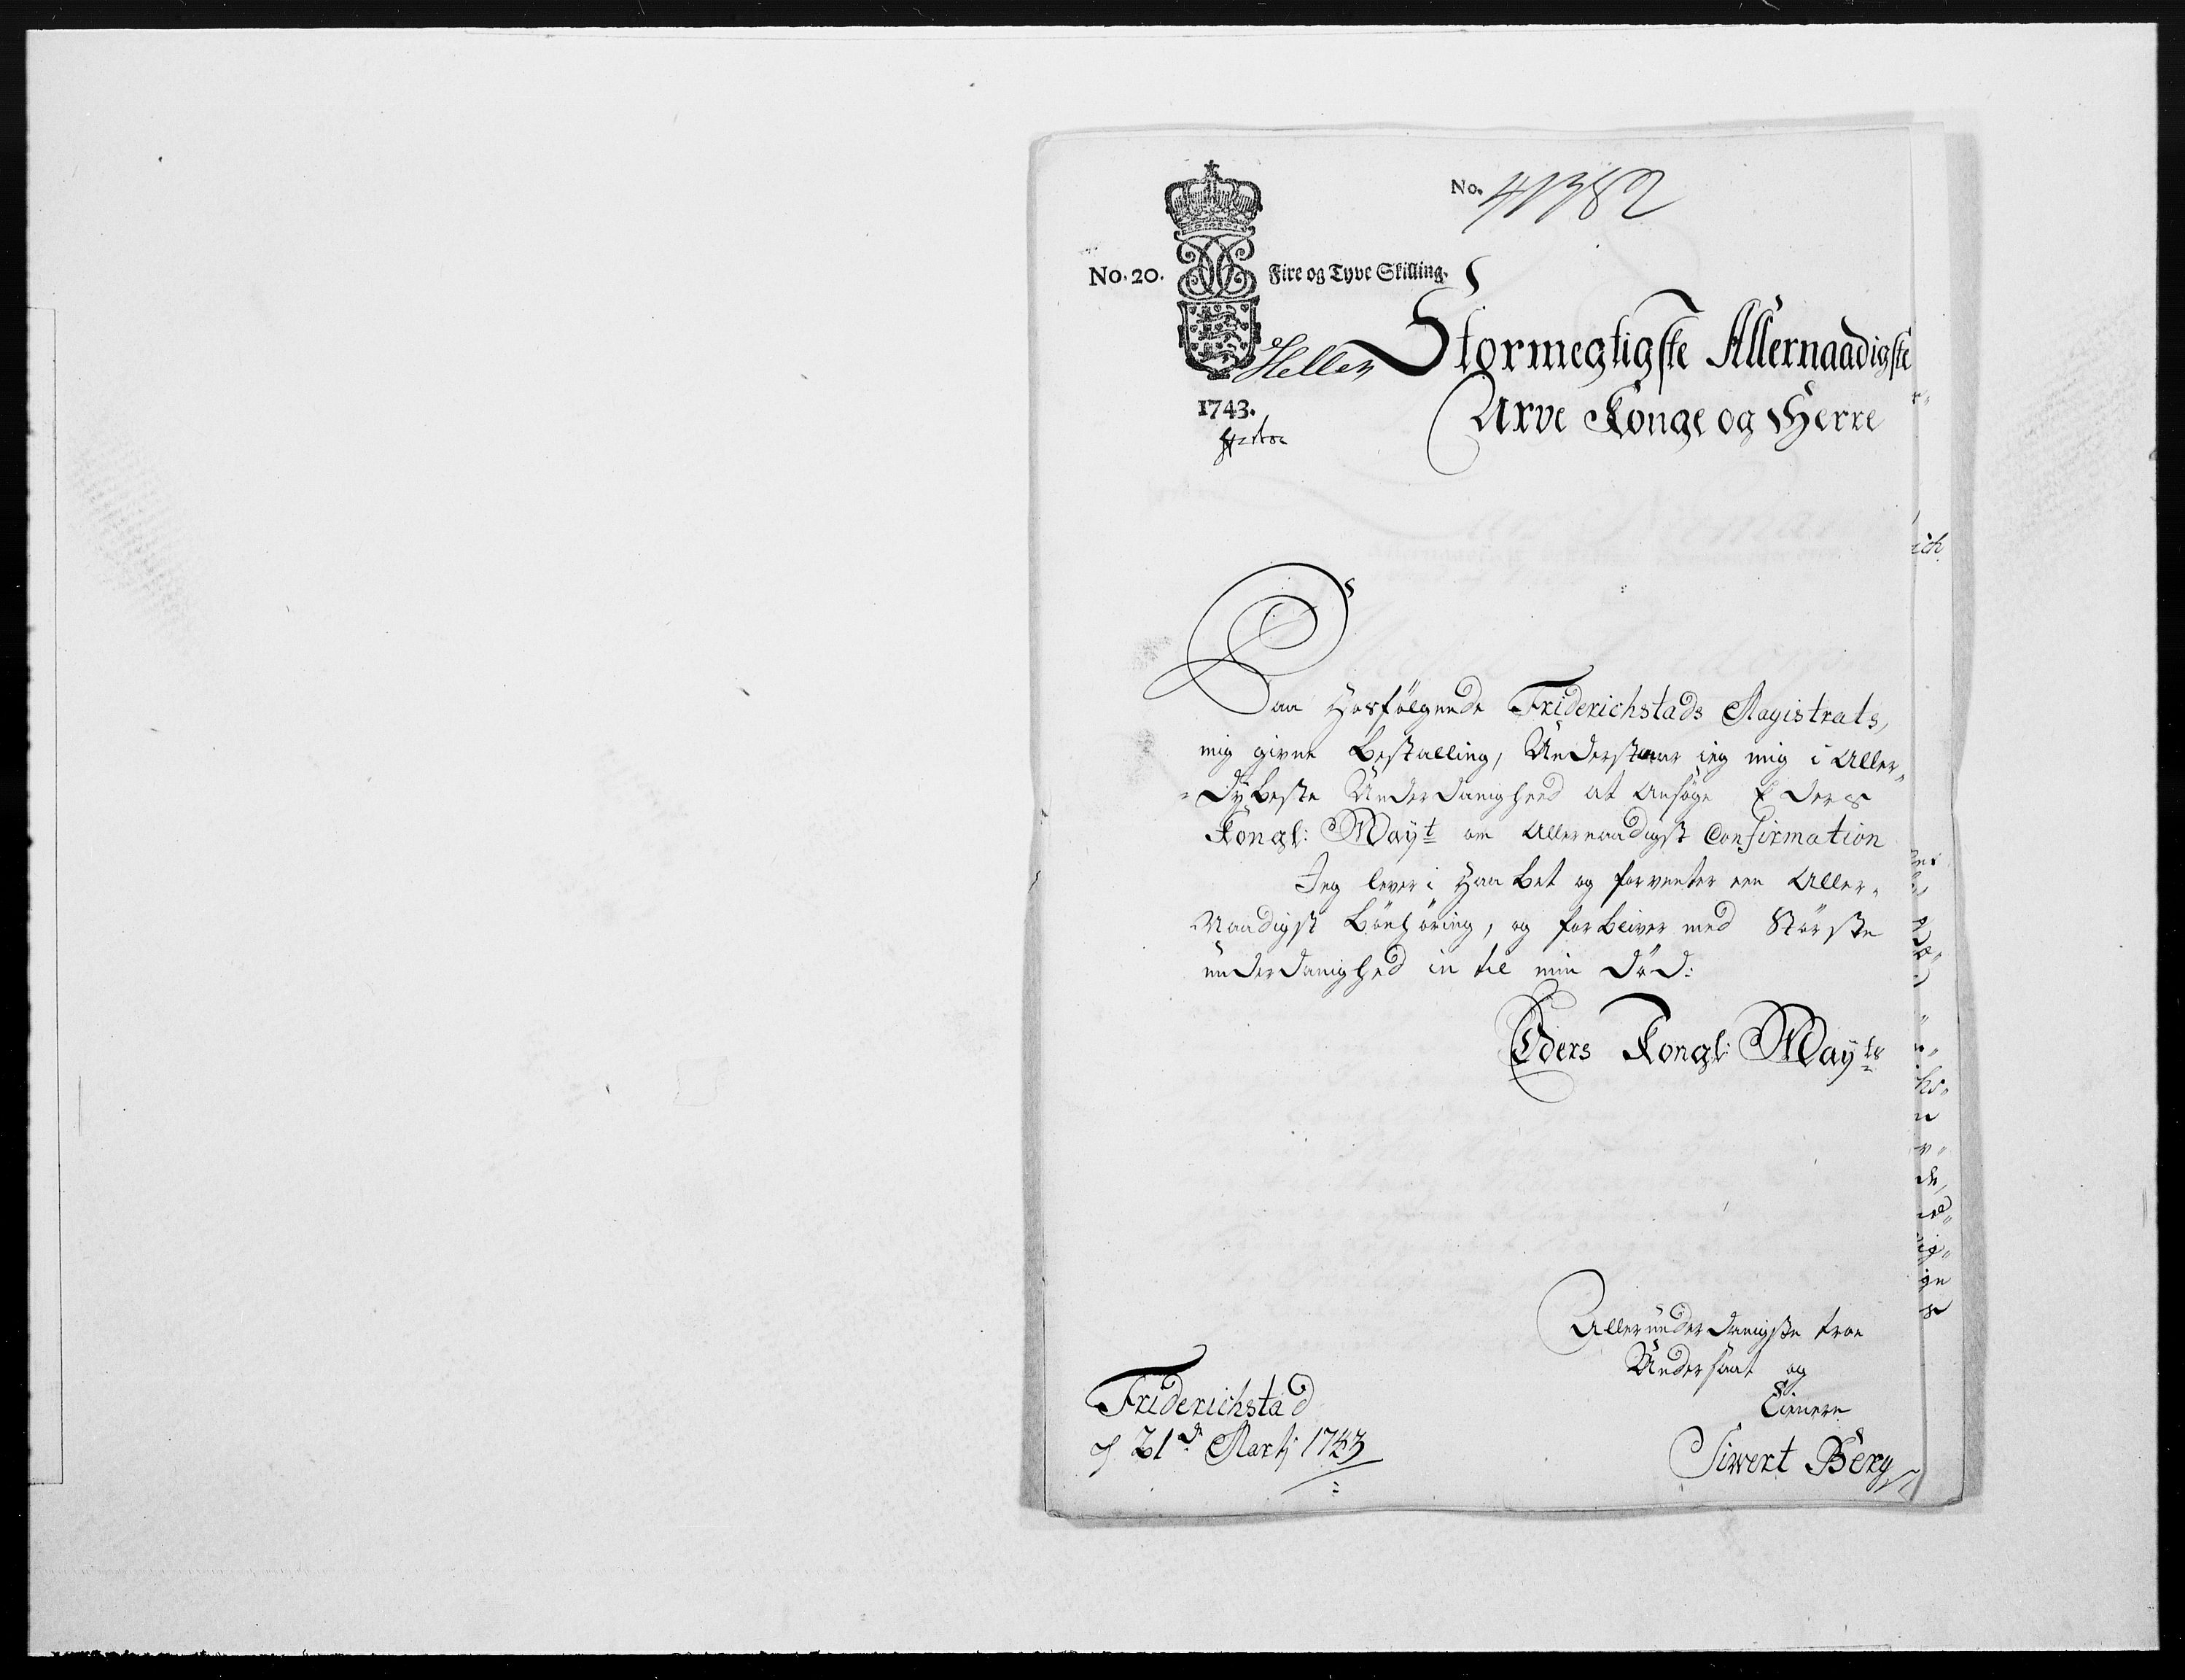 No. 41382
No. 20. Fire og Tyve Skilling.
Stormegtigste Allernaadigste
1743.
Arve Konge og Herre
Paa Hosfølgende Friderichstads Magistrats,
mig givne Bestalling, Understaar ieg mig i Aller„
„dÿbeste Underdanighed at Ansøge Eders
Kongl: Maÿt om Allernaadigst Confirmation
Jeg lever i Haabet og forventer een Aller„
Naadigst Bönhöring, og forbliver med Störste
underdanighed in til min Död:
Eders Kongl: Maÿts
Allerunderdanigste troe
Undersaat og
Tienere
Friderichstad
d 21de Martj 1743
Siwert Berg